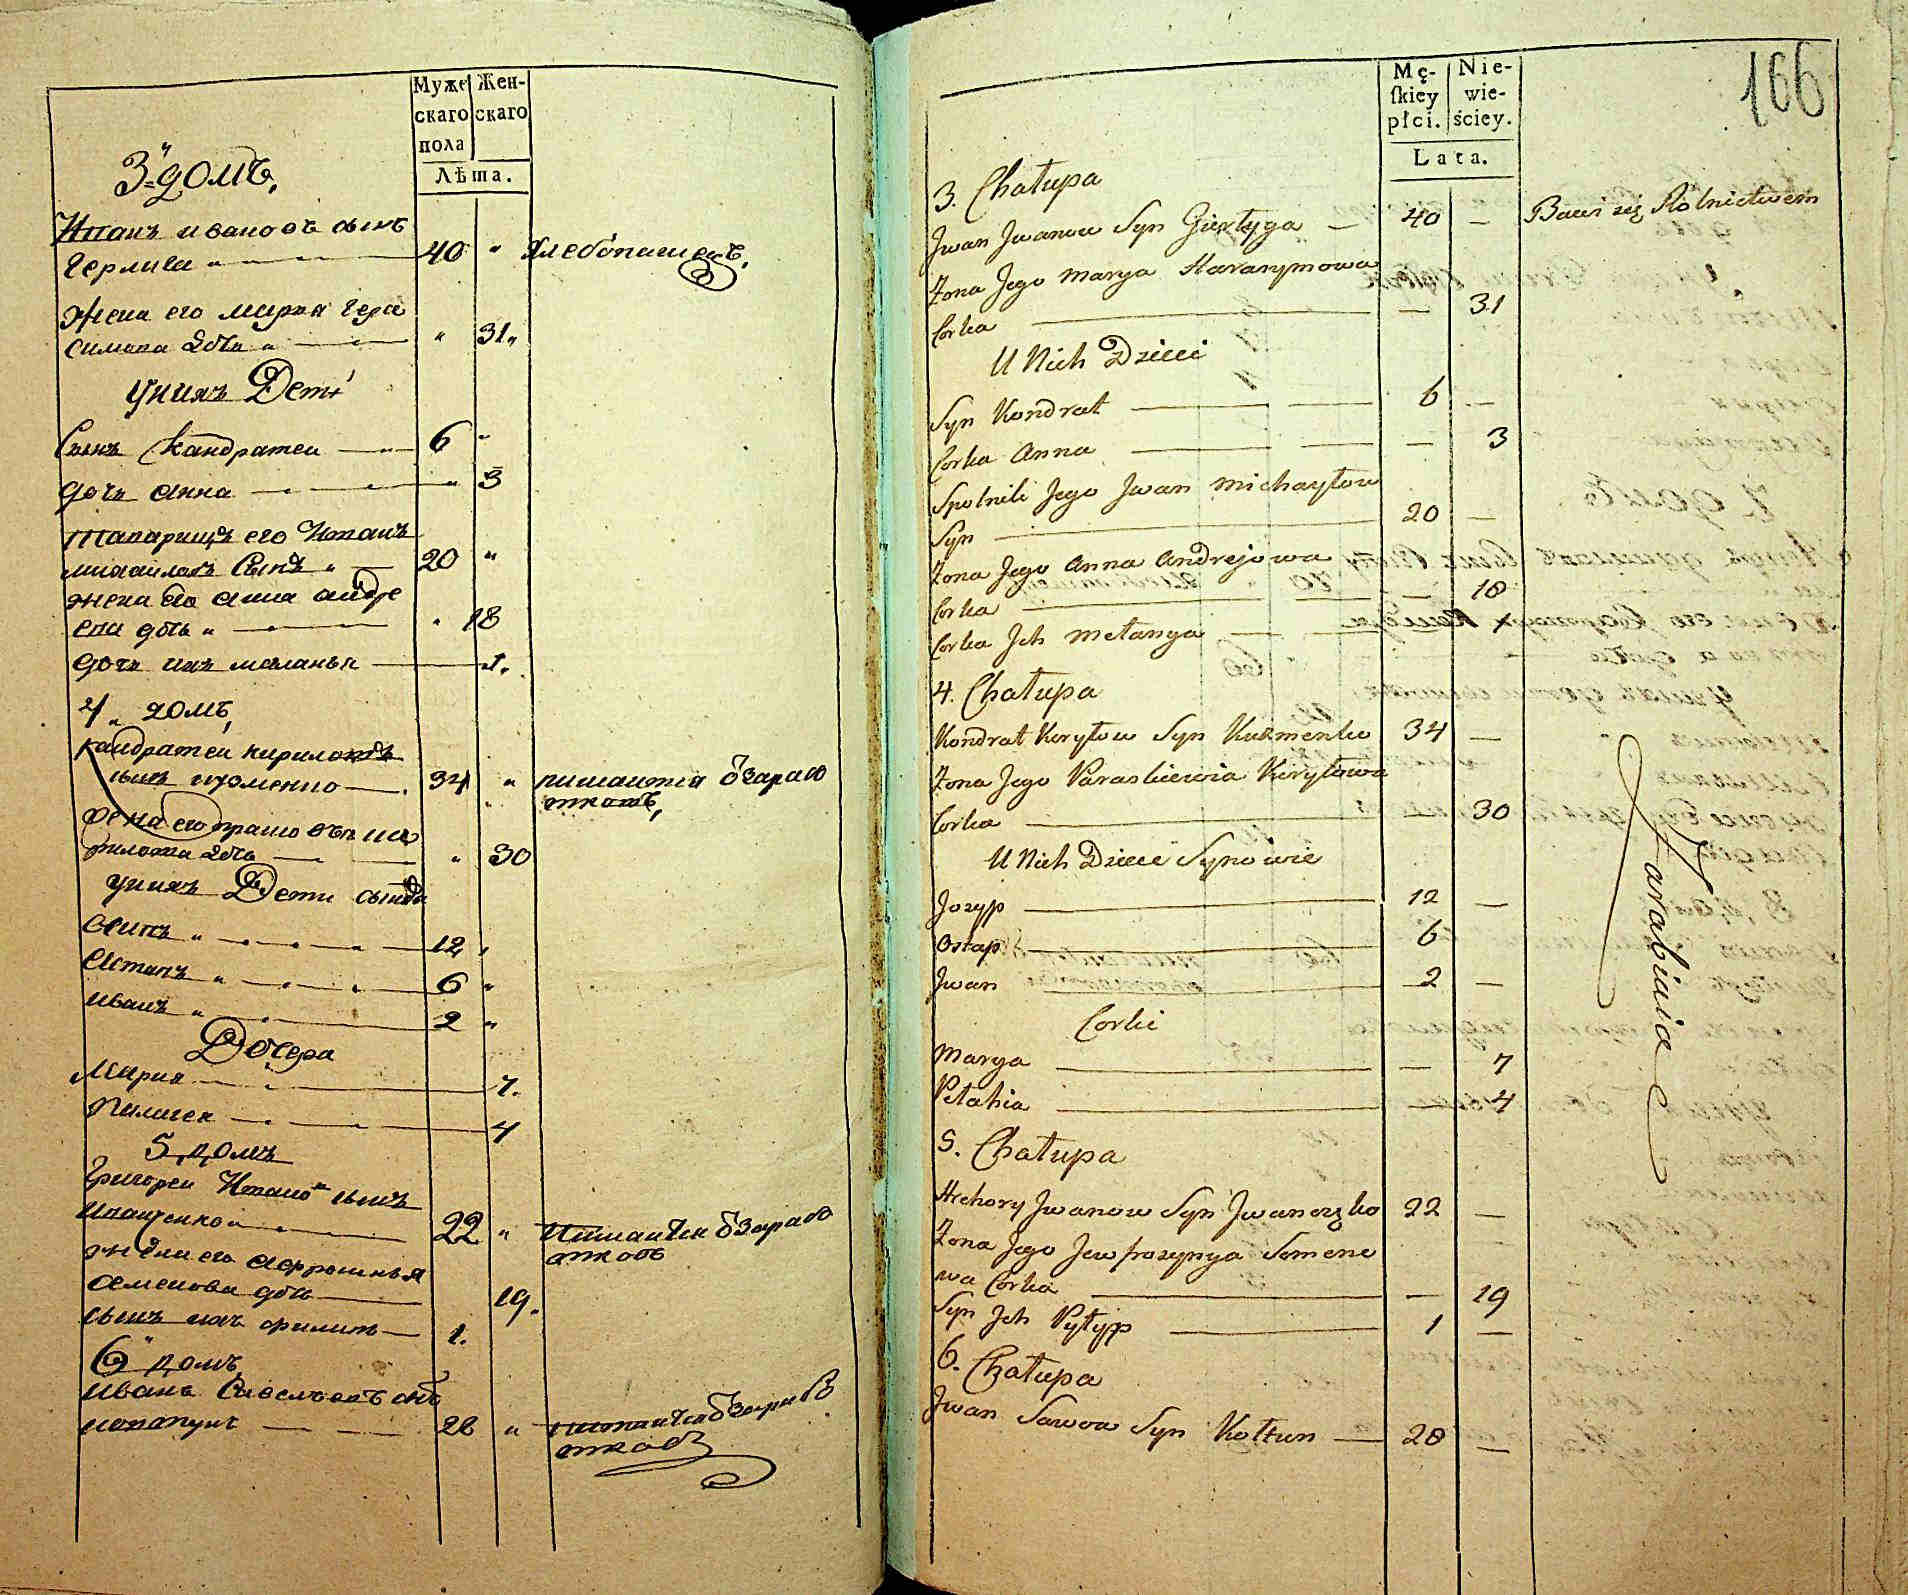 Муже
скаго
пола
Жен-
скаго
Лѣта.
3 домъ,
Иванъ ивановъ сынъ
герлига 40 " Хлебопашецъ,
Жена его мария гера
симова дочь " 31 "
У нихъ Дети
Сынъ Кандратеи 6 "
дочь анна " 3
таварищъ его Иванъ
михаиловъ Сынъ 20 "
жена его анна андре
ева дочь " 18
дочь ихъ маланья 1.
4 " домъ,
кандратеи кириловъ
сынъ кузменко 34 " питаится б зарабо
ткомъ,
жена его прасковья ки
рилова дочь " 30
у нихъ Дети сыновья
Осипъ " 12 "
Астапъ " 6 "
иванъ " 2 "
Дочера
Мария 7.
Палагея 4
5 домъ
Григореи Иванов сынъ
иванченко 22 " питаится б зарабо
ткомъ
жена его афросинья
семенова дочь 19.
сынъ ихъ филипъ 1.
6 " домъ
иванъ Савельевъ снъ
колтунъ 28 " питаится б зарабо
ткомъ
166
Mę-
skiey
płci.
Nie-
wie-
ściey.
Lata.
3. Chałupa
Jwan Jwanow Syn Gierłyga — 40 — Bawi się Rolnictwem
Żona Jego Marya Harasymowa
Corka — — 31
U Nich Dzieci
Syn Kondrat — — 6 —
Corka Anna — — — 3
Spolnik Jego Jwan Michayłow
Syn — 20 —
Żona Jego Anna Andrejowa
Corka — — — 18
Corka Jch Metanya — —
4. Chałupa
Kondrat Kyryłow Syn Kuzmenko 34 —
Żona Jego Paraskiewia Kiryłowa
Corka — — 30
U Nich Dzieci Synowie
Jozyp — 12 —
Ostap — 6
Jwan — 2 —
Corki
Marya — — 7
Pełahia — — 4
Zarabiaia
5. Chałupa
Hrehory Jwanow Syn Jwanczẹko 22 —
Żona Jego Jewfrozynya Semeno
wa Corka — — 19
Syn Jch Pyłyp — 1 —
6. Chałupa
Jwan Sawwa Syn Kołtun — 28 —